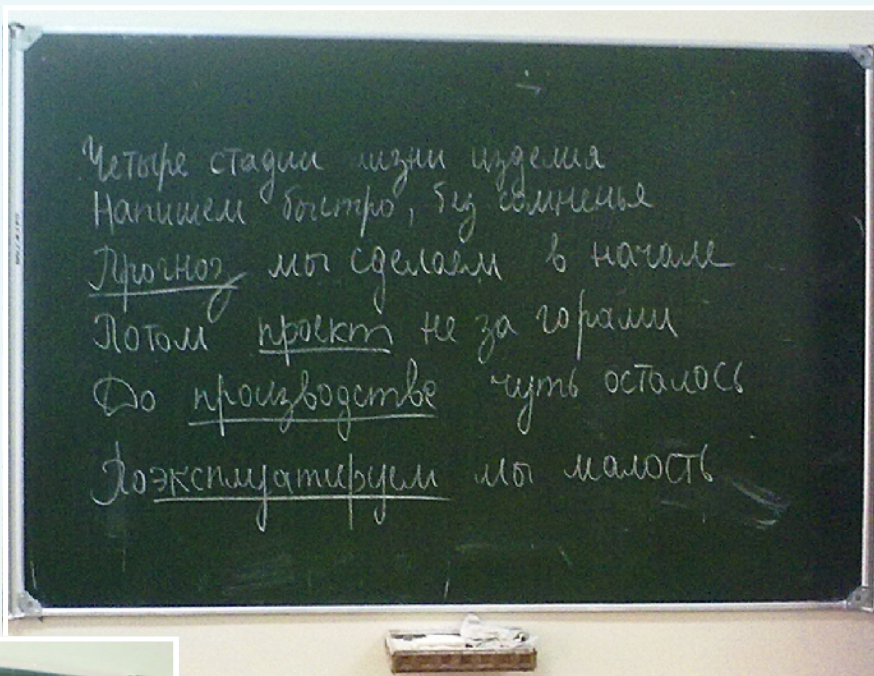 Четыре стадии жизни изделия
Напишем быстро, без сомненья
Прогноз мы сделаем в начале
Потом проект не за горами
До производства чуть осталось
Поэксплуатируем мы малость